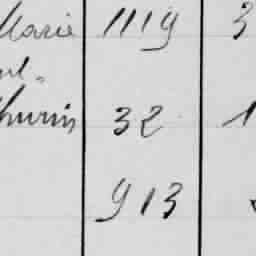 Marie 1119 3
ul
thurin 32 1
913